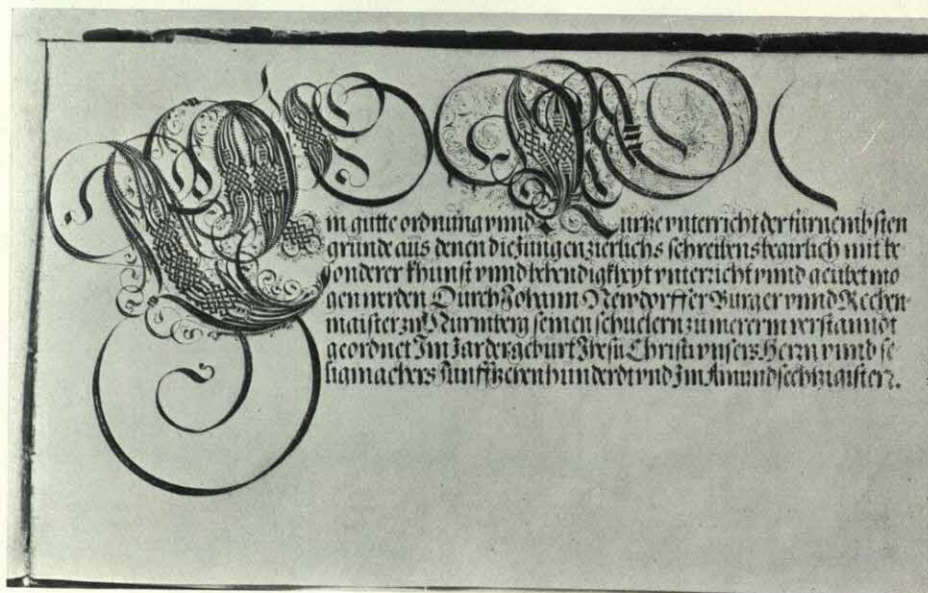 Ein gutte ordnung vnnd Kurtze vnterricht der furnembsten
grunde aus denen die Jungen zierlichs schreibens begirlich mit be
sonderer khunst vnnd behendigkheyt vnterricht vnnd geubet mo
gen werden Durch Johann Newdorffer Burger vnnd Rechen-
maister zw Nurmberg seinen schuelern zu mererm verstanndt
geordnet Im Jar der geburt Jhesu Christi vnsers Herrn vnnd se
ligmachers Funffzehenhunderdt vnd Im Ainundsechtzigisten.